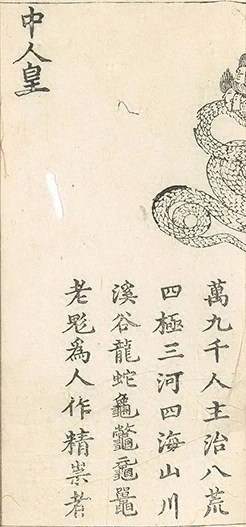 中人皇
萬九千人主治八荒
四極三河四海山川
溪谷龍蛇龜鼈黿鼉
老鬽為人作精祟者